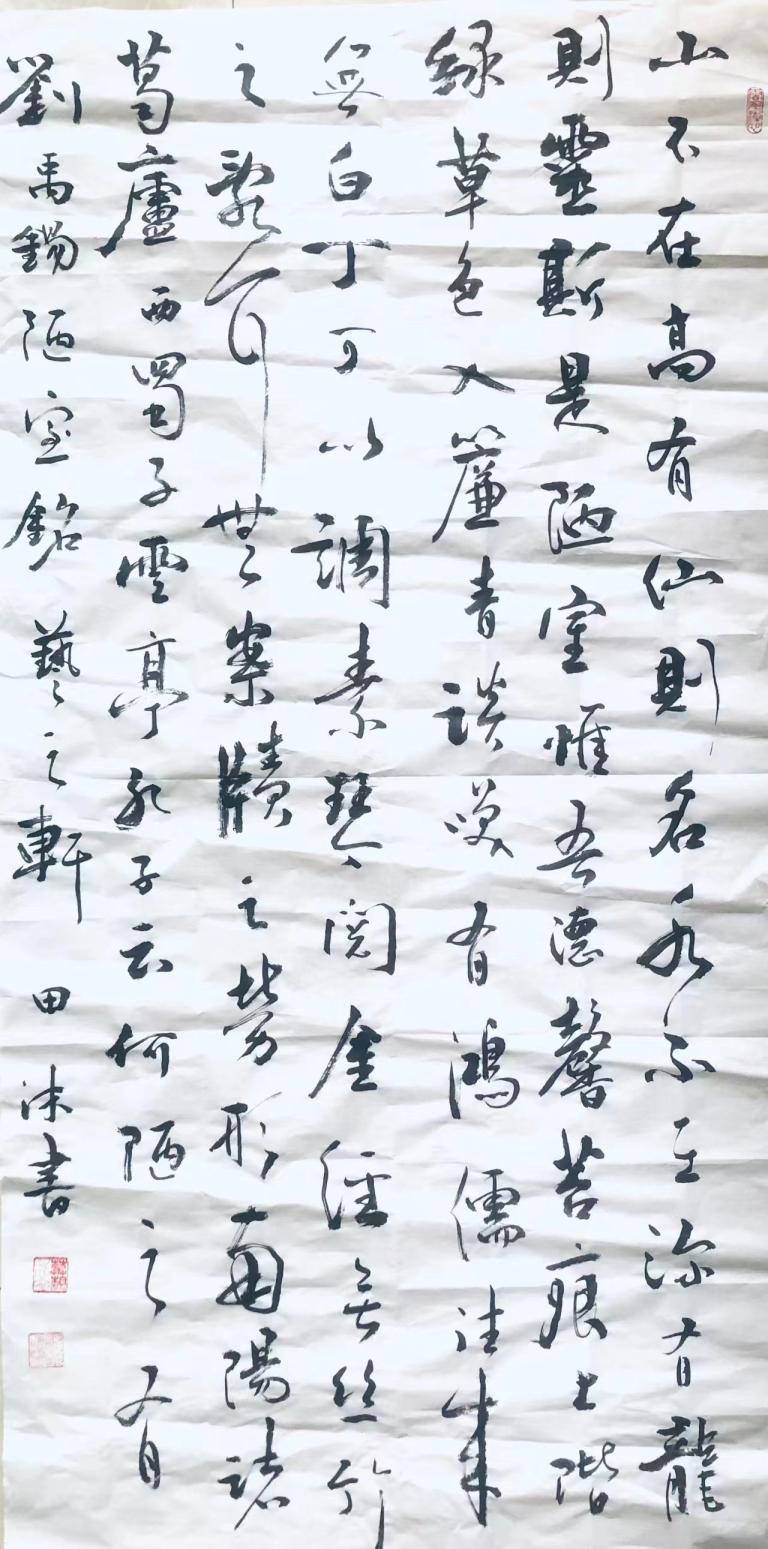 山不在高有仙則名水不在深有龍
則靈斯是陋室惟吾德馨苔痕上階
綠草色入簾青談笑有鴻儒往來
無白丁可以調素琴閱金經無絲竹
之亂耳無案牘之勞形南陽諸
葛廬西蜀子雲亭孔子云何陋之有
劉禹錫陋室銘藝之軒田沫書